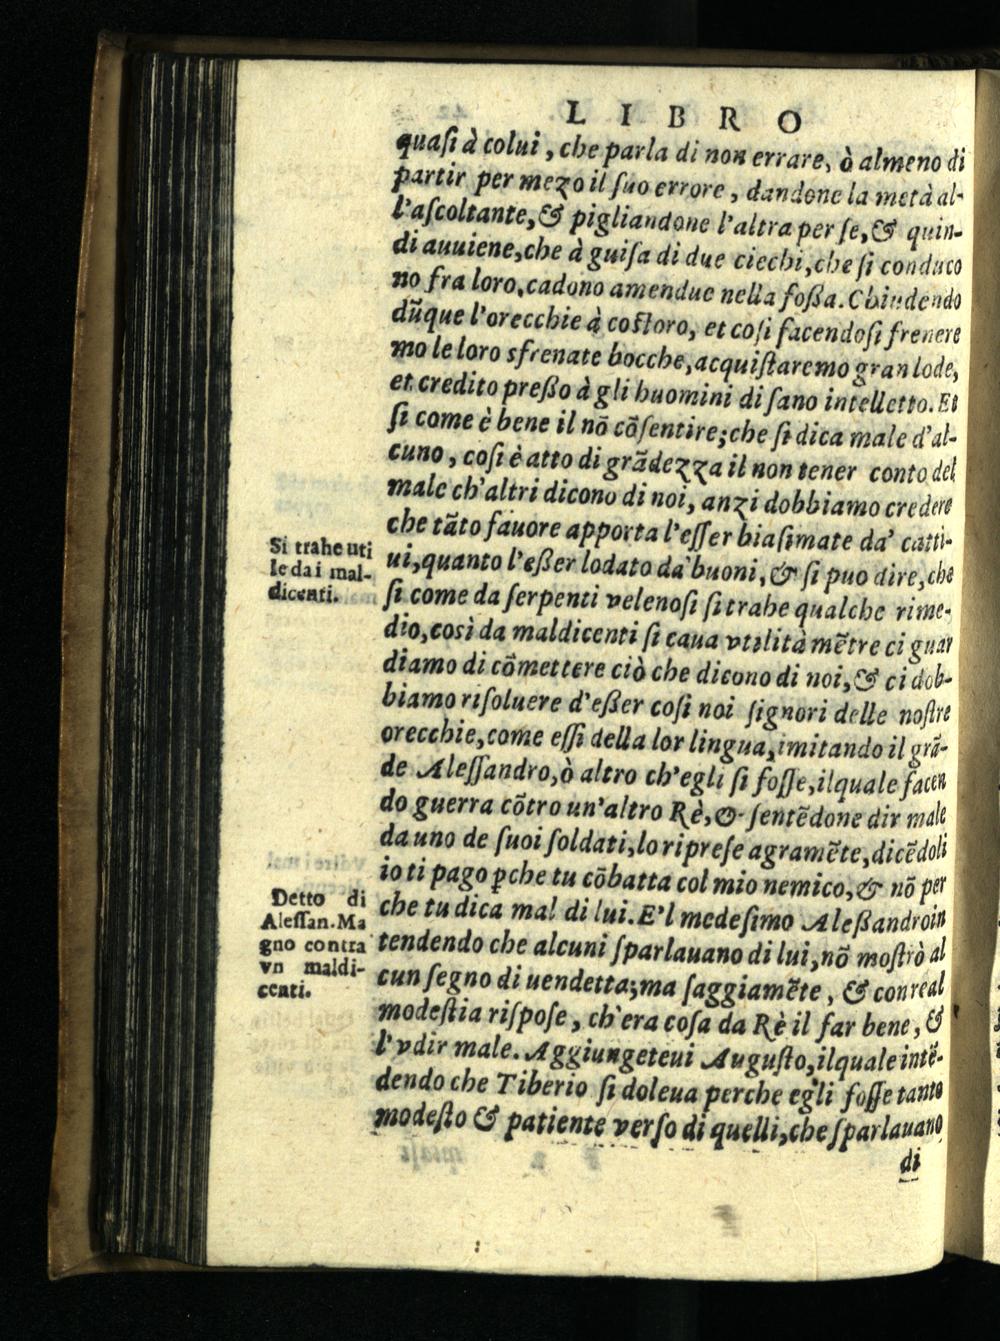 LIBRO
quaſi à colui, che parla di non errare, ò almeno di
partir per mezo il ſuo errore, dandone la metà al-
l'aſcoltante, & pigliandone l'altra per ſe, & quin-
di auuiene, che à guiſa di due ciechi, che ſi conduco
no fra loro, cadono amendue nella foßa. Chiudendo
dũque l'orecchie à coſtoro, et coſi facendoſi frenere
mo le loro sfrenate bocche, acquiſtaremo gran lode,
et credito preßo à gli huomini di ſano intelletto. Et
ſi come è bene il nõ cõſentire; che ſi dica male d'al-
cuno, coſi è atto di grãdezza il non tener conto del
male ch'altri dicono di noi, anzi dobbiamo credere
che tãto fauore apporta l'eſſer biaſimate da' catti-
Si trahe uti
le da i mal-
dicenti.
ui, quanto l'eßer lodato da buoni, & ſi puo dire, che
ſi come da ſerpenti velenoſi ſi trahe qualche rime-
dio, così da maldicenti ſi caua vtilità mẽtre ci guar
diamo di cõmettere ciò che dicono di noi, & ci dob-
biamo riſoluere d'eßer coſi noi ſignori delle noſtre
orecchie, come eſſi della lor lingua, imitando il grã-
de Aleſſandro, ò altro ch'egli ſi foſſe, ilquale facen
do guerra cõtro un'altro Rè, & ſentẽdone dir male
da uno de ſuoi ſoldati, lo ripreſe agramẽte, dicẽdoli
io ti pago ꝑche tu cõbatta col mio nemico, & nõ per
Detto di
Aleſſan. Ma
gno contra
vn maldi-
centi.
che tu dica mal di lui. E'l medeſimo Aleßandro in
tendendo che alcuni ſparlauano di lui, nõ moſtrò al
cun ſegno di uendetta; ma ſaggiamẽte, & con real
modeſtia riſpoſe, ch'era coſa da Rè il far bene, &
l'vdir male. Aggiungeteui Auguſto, ilquale intẽ-
dendo che Tiberio ſi doleua perche egli foſſe tanto
modeſto & patiente verſo di quelli, che ſparlauano
di